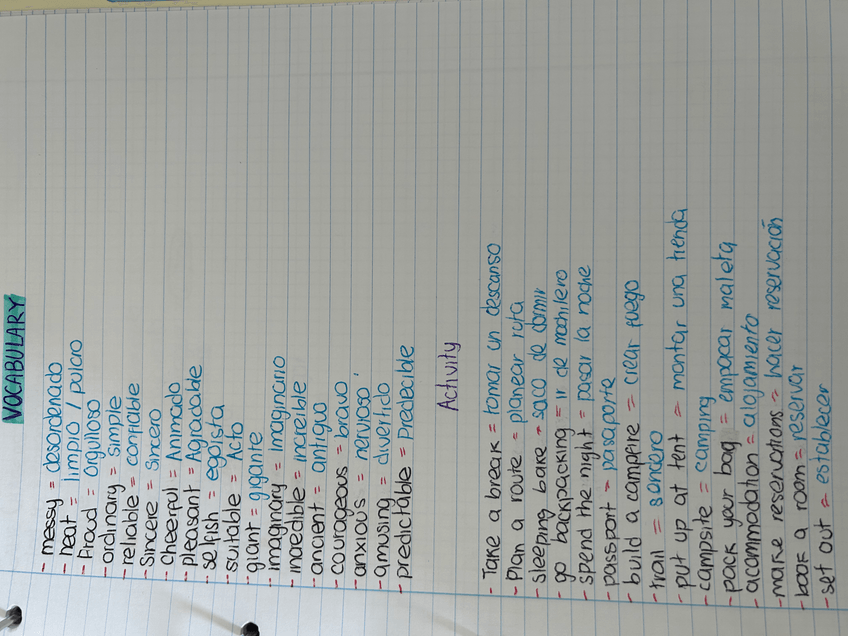 VOCABULARY
- messy = desordenado
- neat = limpio / pulcro
- Proud = orgulloso
- ordinary = simple
- reliable = confiable
- Sincere = Sincero
- Cheerful = Animado
- pleasant = Agradable
- selfish = egoista
- suitable = Acto
- giant = gigante
- imaginary = Imaginario
- incredible = increible
- ancient = antiguo
- courageous = bravo
- anxious = nervioso
- amusing = divertido
- predictable = Predecible
Activity
- Take a break = tomar un descanso
- Plan a route = planear ruta
- sleeping bake = saco de dormir
- go backpacking = ir de mochilero
- spend the night = pasar la noche
- passport = pasaporte
- build a campfire = crear fuego
- trail = sendero
- put up at tent = montar una tienda
- campsite = camping
- pack your bag = empacar maleta
- acommodation = alojamiento
- make reservations = hacer reservación
- book a room = reservar
- set out = establecer